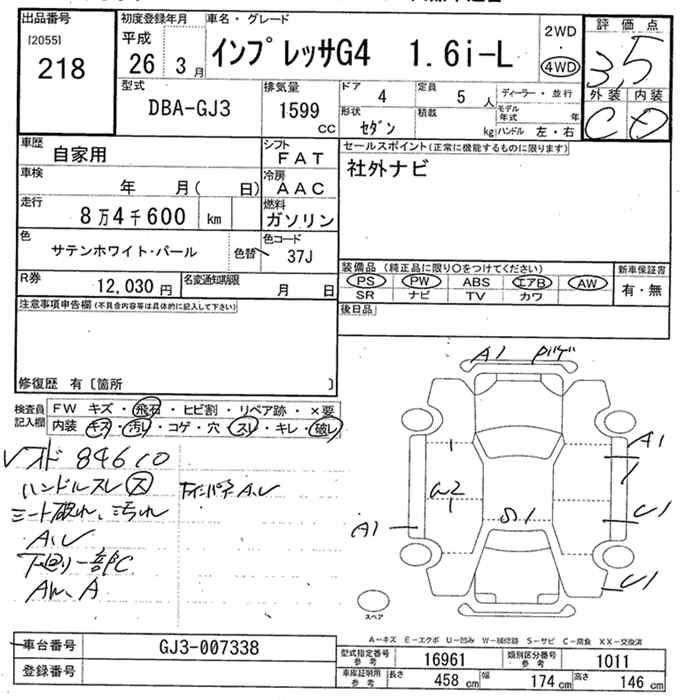 出品番号
[2055]
218
初度登録年月
平成
26 3月
車名・グレード
インプレッサG4 1.6i-L
2WD
・
4WD
評価点
3.5
外装 内装
C D
型式
DBA-GJ3
排気量
1599 CC
ドア 4
定員 5 人
ディーラー・並行
形状 セダン
積載 kg
モデル年式 年
ハンドル 左・右
車歴 自家用
シフト FAT
車検 年 月( 日)
冷房 AAC
走行 8万4千600 km
燃料 ガソリン
色 サテンホワイト・パール
色替
色コード 37J
R券 12,030円
名変通知期限 月 日
セールスポイント(正常に機能するものに限ります)
社外ナビ
装備品 (純正品に限り○をつけてください)
新車保証書
PS PW ABS エアB AW
SR ナビ TV カワ
有・無
後日品
注意事項申告欄(不具合内容等は具体的に記入して下さい)
修復歴 有〔箇所 〕
検査員記入欄
FW キズ・飛石・ヒビ割・リペア跡・×要
内装 キズ・汚レ・コゲ・穴・スレ・キレ・破レ
84610
ハンドルスレ ス
シート破れ、汚れ
A、U
下回り一部C
AW、A
A1
A1
U1
U1
A1
W2
S1
スペア
A-キズ E-エクボ U-凹み W-補修跡 S-サビ C-腐食 XX-交換済
車台番号 GJ3-007338
登録番号
型式指定番号 参考 16961
類別区分番号 参考 1011
車庫証明用 参考 長さ 458 cm 幅 174 cm 高さ 146 cm